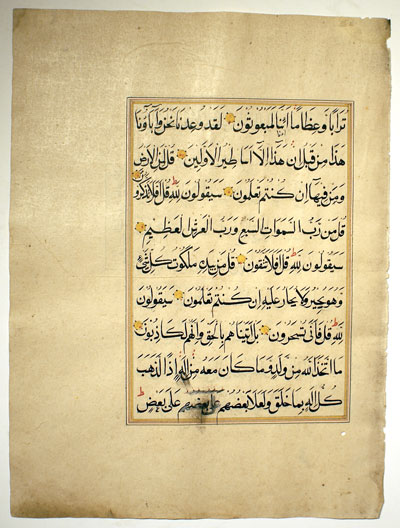 تُرَابًا وَعِظَامًا أَئِنَّا لَمَبْعُوثُونَ لَقَدْ وُعِدْنَا نَحْنُ وَآبَاؤُنَا
هَذَا مِنْ قَبْلُ إِنْ هَذَا إِلَّا أَسَاطِيرُ الْأَوَّلِينَ قُلْ لِمَنِ الْأَرْضُ
وَمَنْ فِيهَا إِنْ كُنْتُمْ تَعْلَمُونَ سَيَقُولُونَ لِلَّهِ قُلْ أَفَلَا تَذَكَّرُونَ
قُلْ مَنْ رَبُّ السَّمَوَاتِ السَّبْعِ وَرَبُّ الْعَرْشِ الْعَظِيمِ
سَيَقُولُونَ لِلَّهِ قُلْ أَفَلَا تَتَّقُونَ قُلْ مَنْ بِيَدِهِ مَلَكُوتُ كُلِّ شَيْءٍ
وَهُوَ يُجِيرُ وَلَا يُجَارُ عَلَيْهِ إِنْ كُنْتُمْ تَعْلَمُونَ سَيَقُولُونَ
لِلَّهِ قُلْ فَأَنَّى تُسْحَرُونَ بَلْ أَتَيْنَاهُمْ بِالْحَقِّ وَإِنَّهُمْ لَكَاذِبُونَ
مَا اتَّخَذَ اللَّهُ مِنْ وَلَدٍ وَمَا كَانَ مَعَهُ مِنْ إِلَهٍ إِذًا لَذَهَبَ
كُلُّ إِلَهٍ بِمَا خَلَقَ وَلَعَلَا بَعْضُهُمْ عَلَى بَعْضِهِمْ عَلَى بَعْضٍ